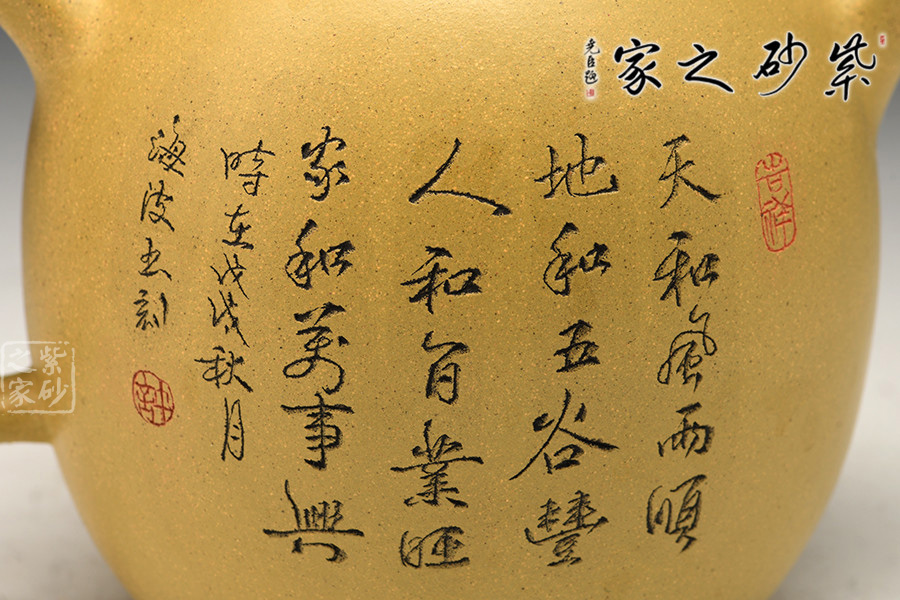 紫砂之家
吉祥
天和風雨順
地和五谷豐
人和百業旺
家和萬事興
時在戊戌秋月
海波书刻
紫砂之家